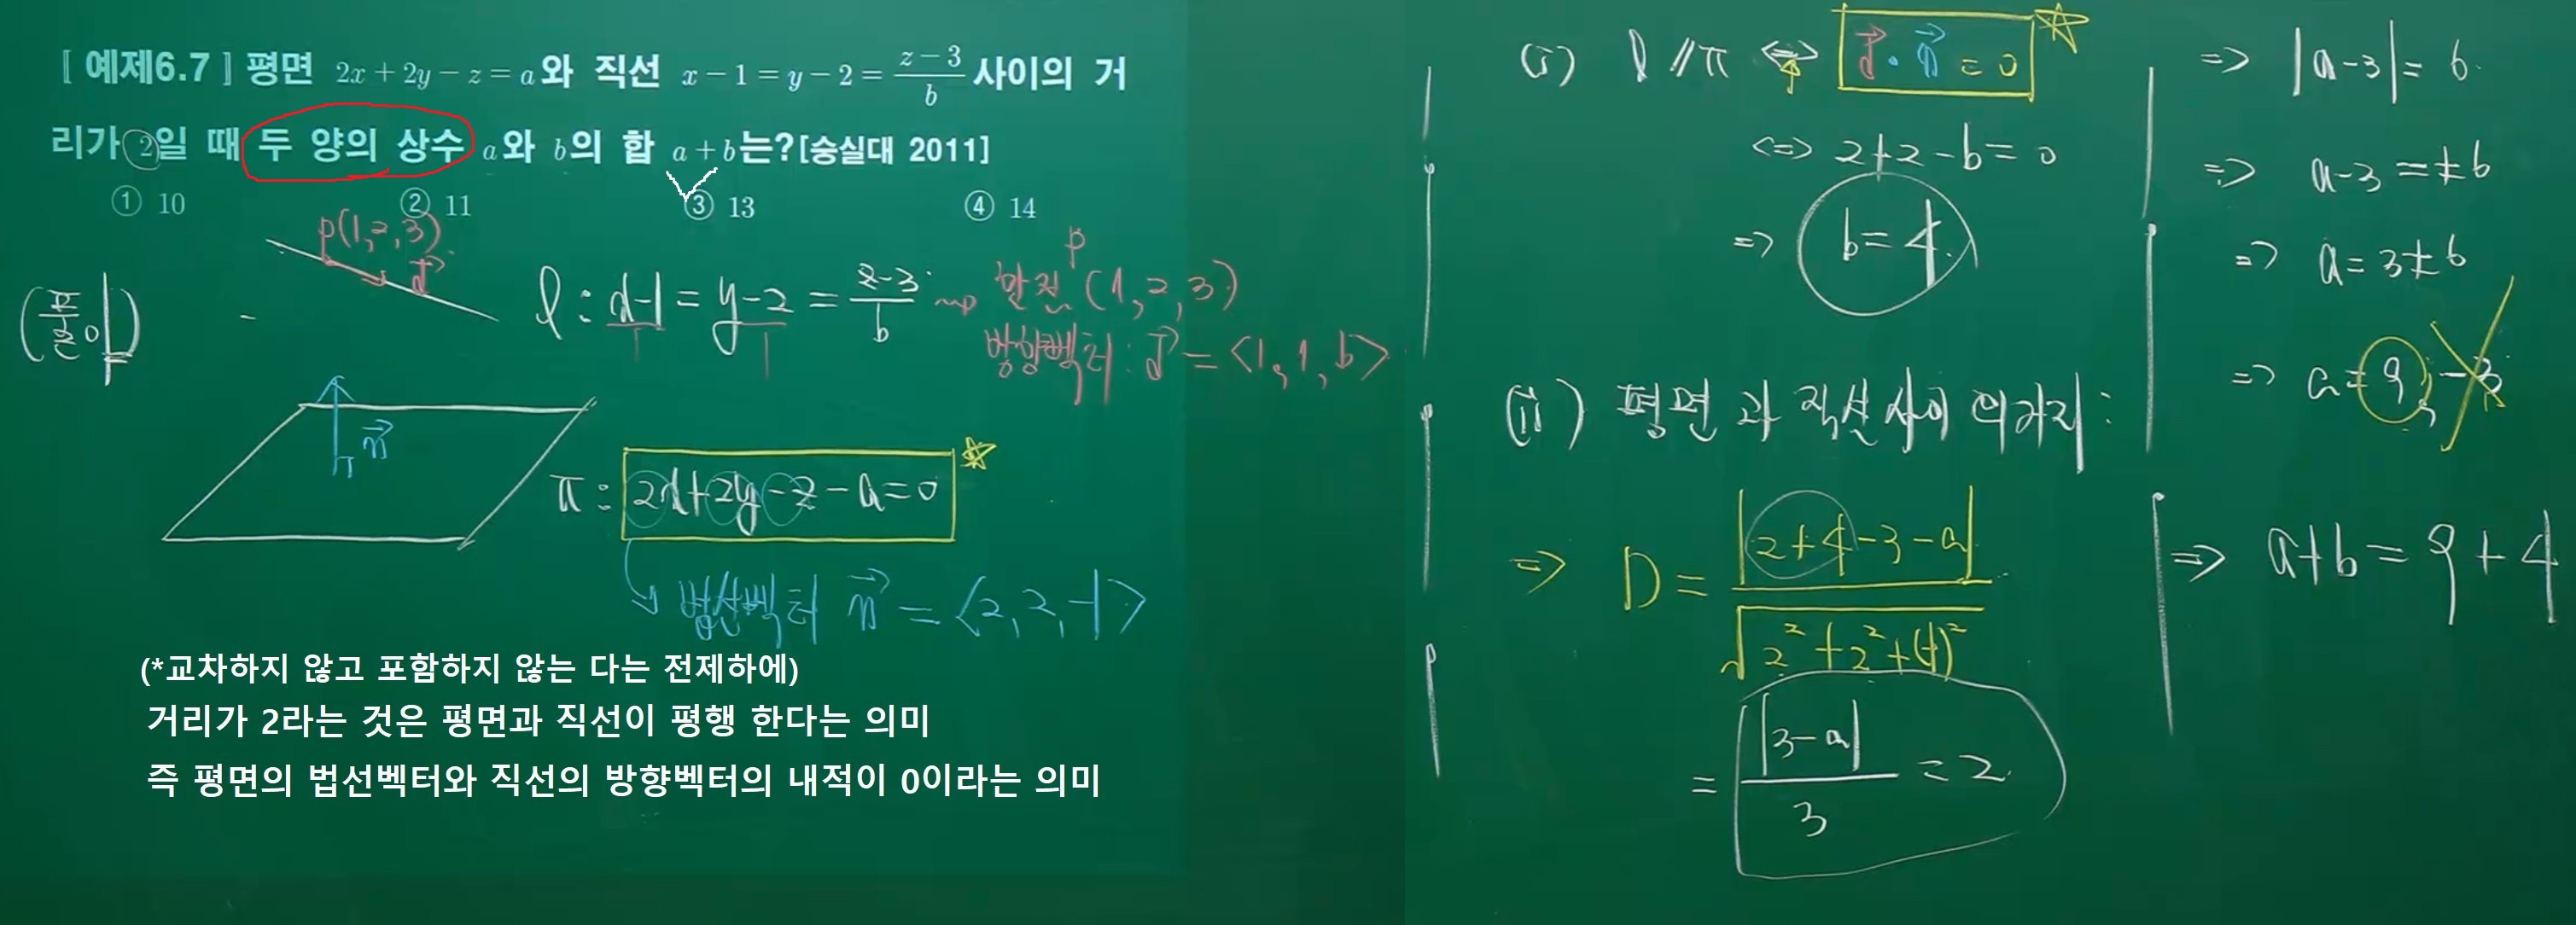 [ 예제6.7 ] 평면 2x + 2y − z = a와 직선 x − 1 = y − 2 = \frac{z − 3}{b} 사이의 거
리가 2일 때 두 양의 상수 a와 b의 합 a + b는?[숭실대 2011]
① 10 ② 11 ③ 13 ④ 14
P(1,2,3)
\vec{d}
(풀이)
l : \frac{x-1}{1} = \frac{y-2}{1} = \frac{z-3}{b} ⇝ 한점 P(1,2,3)
방향벡터 : \vec{d} = <1, 1, b>
\vec{n}
π
π : 2x+2y-z-a=0
↳ 법선벡터 \vec{n} = <2, 2, -1>
(*교차하지 않고 포함하지 않는 다는 전제하에)
거리가 2라는 것은 평면과 직선이 평행 한다는 의미
즉 평면의 법선벡터와 직선의 방향벡터의 내적이 0이라는 의미
(i) l // π ⟺ \vec{d} · \vec{n} = 0
⟺ 2+2-b=0
⇒ b=4.
(ii) 평면과 직선사이의거리 :
⇒ D = \frac{|2+4-3-a|}{\sqrt{2²+2²+(-1)²}}
= \frac{|3-a|}{3} = 2
⇒ |a-3| = 6
⇒ a-3 = ±6
⇒ a = 3±6
⇒ a = 9, -3
⇒ a+b = 9+4